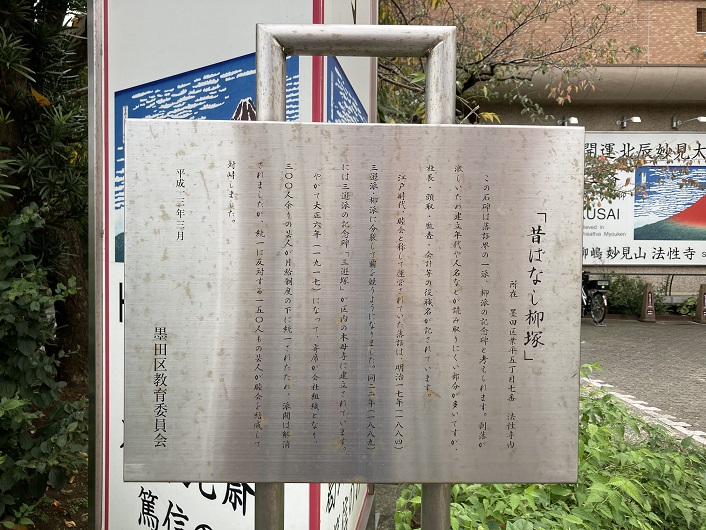 「昔ばなし柳塚」
所在　墨田区業平五丁目七番　法性寺内
この石碑は落語界の一派、柳派の記念碑と考えられます。剥落が
激しいため建立年代や人名などが読み取りにくい部分が多いですが、
社長・頭取・監査・会計等の役職名が記されています。
江戸時代、睦会と称して運営されていた落語は、明治一七年（一八八四）
三遊派・柳派に分裂して覇を競うようになりました。同二二年（一八八九）
には三遊派の記念碑「三遊塚」が区内の木母寺に建立されています。
やがて大正六年（一九一七）になって、寄席が会社組織となり、
三〇〇人余りの芸人が月給制度の下に統一されたため、派閥は解消
されましたが、統一に反対する一五〇人もの芸人が睦会を結成して
対峙しました。
平成一三年三月
墨田区教育委員会
開運 北辰妙見大
USAI
柳嶋 妙見山 法性寺
斎
篤信の